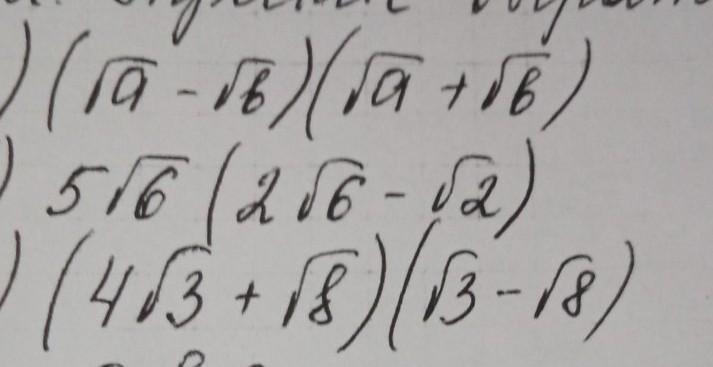 ) (√a - √b)(√a + √b)
) 5√6 (2√6 - √2)
) (4√3 + √8)(√3 - √8)